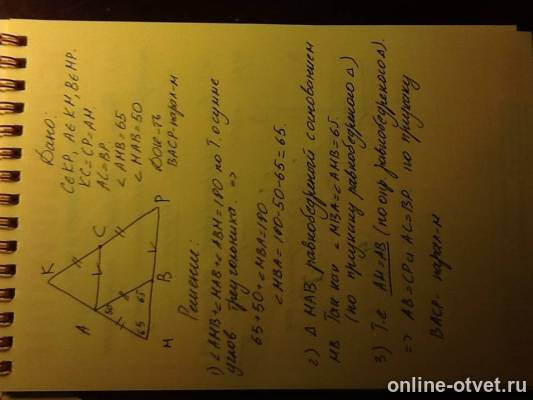 Дано:
C∈KP, A∈KM, B∈MP.
KC=CP=AM.
AC=BP.
∠AMB=65
∠MAB=50
Док-ть
BACP-парал-м
K
C
P
A
50
65
65
B
M
Решение:
1) ∠AMB+∠MAB+∠ABM=180 по Т. о сумме
углов треугольника. =>
65+50+∠MBA=180
∠MBA=180-50-65=65.
2) Δ MAB равнобедренный с основанием
MB Так как ∠MBA=∠AMB=65
(по признаку равнобедренного Δ)
3) Т.е AM=AB (по опр равнобедренного Δ).
=> AB=CP и AC=BP. по признаку
BACP- парал-м
online-otvet.ru